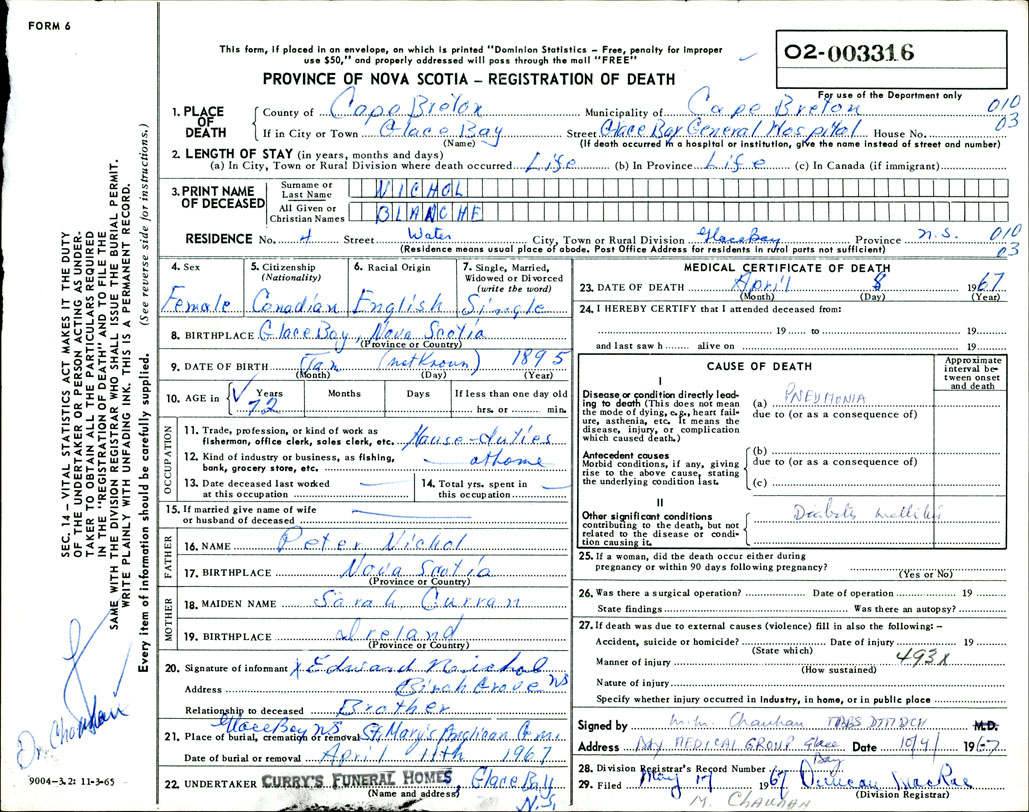 FORM 6
This form, if placed in an envelope, on which is printed "Dominion Statistics – Free, penalty for improper
use $50," and properly addressed will pass through the mail "FREE"
O2-003316
PROVINCE OF NOVA SCOTIA – REGISTRATION OF DEATH
For use of the Department only
1. PLACE OF DEATH
County of Cape Breton Municipality of Cape Breton 010
If in City or Town Glace Bay Street Glace Bay General Hospital House No. 03
(Name) (If death occurred in a hospital or institution, give the name instead of street and number)
2. LENGTH OF STAY (in years, months and days)
(a) In City, Town or Rural Division where death occurred Life (b) In Province Life (c) In Canada (if immigrant)
3. PRINT NAME OF DECEASED
Surname or Last Name NICHOL
All Given or Christian Names BLANCHE
RESIDENCE No. 4 Street Water City, Town or Rural Division Glace Bay Province N.S. 010
(Residence means usual place of abode. Post Office Address for residents in rural parts not sufficient) 03
4. Sex
Female
5. Citizenship
(Nationality)
Canadian
6. Racial Origin
English
7. Single, Married,
Widowed or Divorced
(write the word)
Single
8. BIRTHPLACE Glace Bay, Nova Scotia
(Province or Country)
9. DATE OF BIRTH Jan (not Known) 1895
(Month) (Day) (Year)
10. AGE in Years Months Days If less than one day old
72 hrs. or min.
OCCUPATION
11. Trade, profession, or kind of work as
fisherman, office clerk, sales clerk, etc. House-duties
12. Kind of industry or business, as fishing,
bank, grocery store, etc. at home
13. Date deceased last worked
at this occupation
14. Total yrs. spent in
this occupation
15. If married give name of wife
or husband of deceased
FATHER
16. NAME Peter Nichol
17. BIRTHPLACE Nova Scotia
(Province or Country)
MOTHER
18. MAIDEN NAME Sarah Curran
19. BIRTHPLACE Ireland
(Province or Country)
20. Signature of informant x Edward Nichol
Address Birch Grove NS
Relationship to deceased Brother
Glace Bay NS
21. Place of burial, cremation or removal St. Mary's Anglican Cem.
Date of burial or removal April 11th 1967
22. UNDERTAKER CURRY'S FUNERAL HOMES, Glace Bay
(Name and address) N.S.
MEDICAL CERTIFICATE OF DEATH
23. DATE OF DEATH April 8 1967
(Month) (Day) (Year)
24. I HEREBY CERTIFY that I attended deceased from:
19 to 19
and last saw h alive on 19
CAUSE OF DEATH
Approximate
interval be-
tween onset
and death
I
Disease or condition directly lead-
ing to death (This does not mean
the mode of dying, e.g., heart fail-
ure, asthenia, etc. It means the
disease, injury, or complication
which caused death.)
(a) PNEUMONIA
due to (or as a consequence of)
Antecedent causes
Morbid conditions, if any, giving
rise to the above cause, stating
the underlying condition last.
(b)
due to (or as a consequence of)
(c)
II
Other significant conditions
contributing to the death, but not
related to the disease or condi-
tion causing it.
Diabetes mellitus
25. If a woman, did the death occur either during
pregnancy or within 90 days following pregnancy?
(Yes or No)
26. Was there a surgical operation? Date of operation 19
State findings Was there an autopsy?
27. If death was due to external causes (violence) fill in also the following: –
Accident, suicide or homicide? Date of injury 19
(State which)
493x
Manner of injury
(How sustained)
Nature of injury
Specify whether injury occurred in industry, in home, or in public place
Signed by M.M. Chauhan M.D.
Address Bay MEDICAL GROUP Glace Bay Date 10/4/ 1967
28. Division Registrar's Record Number
29. Filed May 17 1967 Duncan MacRae
(Division Registrar)
M. CHAUHAN
SEC. 14 – VITAL STATISTICS ACT MAKES IT THE DUTY
OF THE UNDERTAKER OR PERSON ACTING AS UNDER-
TAKER TO OBTAIN ALL THE PARTICULARS REQUIRED
IN THE "REGISTRATION OF DEATH" AND TO FILE THE
SAME WITH THE DIVISION REGISTRAR WHO SHALL ISSUE THE BURIAL PERMIT.
WRITE PLAINLY WITH UNFADING INK. THIS IS A PERMANENT RECORD.
Every item of information should be carefully supplied. (See reverse side for instructions.)
Dr. Chauhan
9004-3.2: 11-3-65